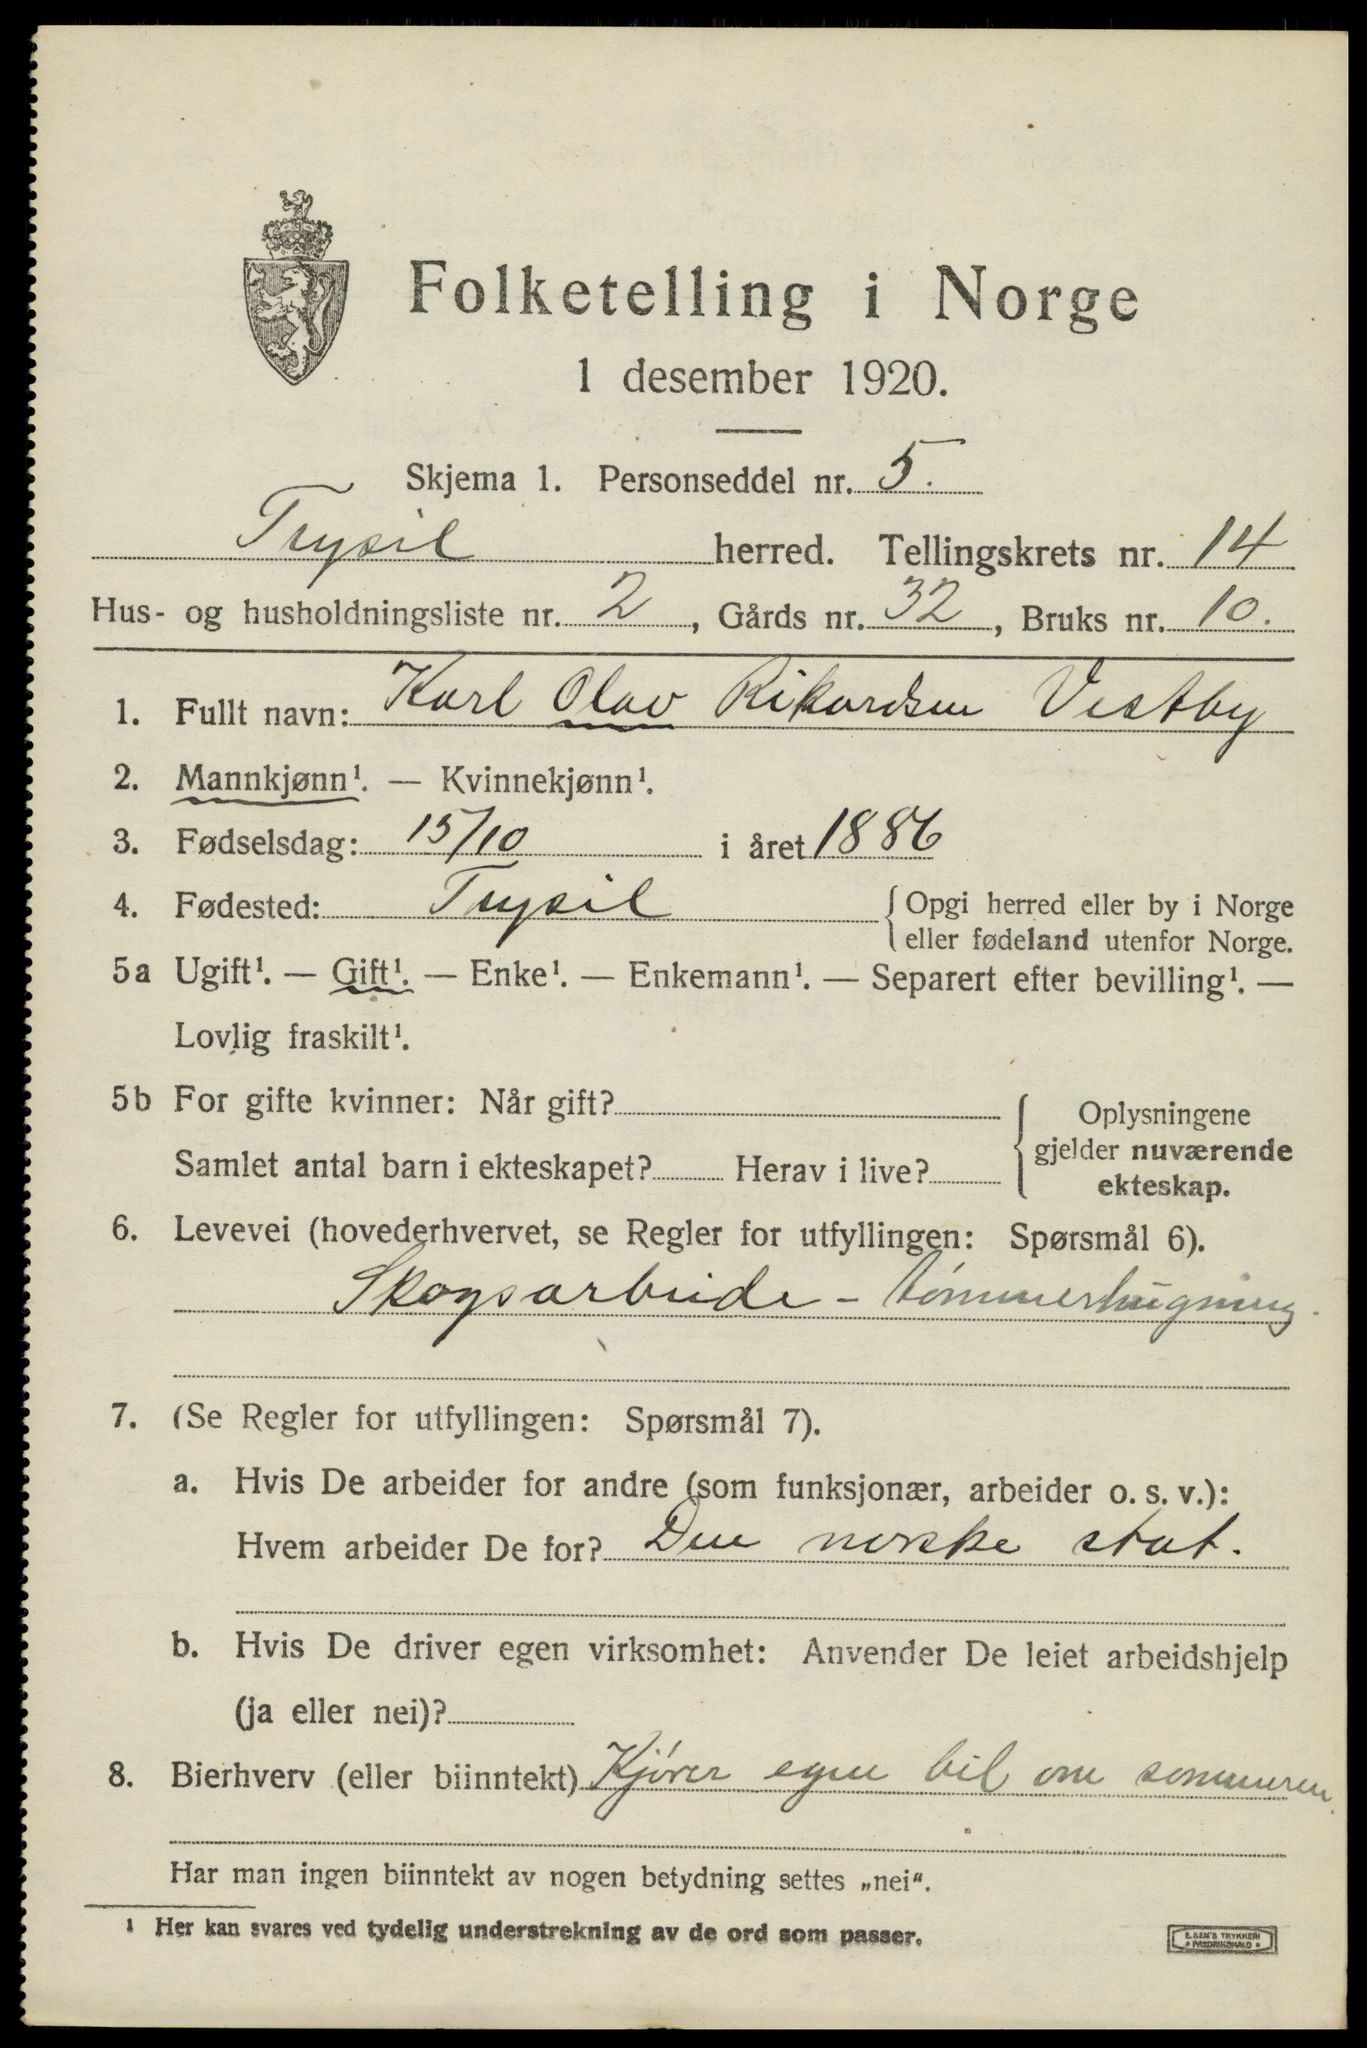 Folketelling i Norge
1 desember 1920.
Skjema 1. Personseddel nr. 5.
Trysil herred. Tellingskrets nr. 14
Hus- og husholdningsliste nr. 2, Gårds nr. 32, Bruks nr. 10.
1. Fullt navn: Karl Olav Rikardsen Vestby
2. Mannkjønn¹. — Kvinnekjønn¹.
3. Fødselsdag: 15/10 i året 1886
4. Fødested: Trysil { Opgi herred eller by i Norge
eller fødeland utenfor Norge.
5a Ugift¹. — Gift¹. — Enke¹. — Enkemann¹. — Separert efter bevilling¹. —
Lovlig fraskilt¹.
5b For gifte kvinner: Når gift?
Samlet antal barn i ekteskapet? Herav i live?
{ Oplysningene
gjelder nuværende
ekteskap.
6. Levevei (hovederhvervet, se Regler for utfyllingen: Spørsmål 6).
Skogsarbeide - tømmerhugning.
7. (Se Regler for utfyllingen: Spørsmål 7).
a. Hvis De arbeider for andre (som funksjonær, arbeider o. s. v.):
Hvem arbeider De for? Den norske stat.
b. Hvis De driver egen virksomhet: Anvender De leiet arbeidshjelp
(ja eller nei)?
8. Bierhverv (eller biinntekt) Kjører egen bil om sommeren.
Har man ingen biinntekt av nogen betydning settes „nei“.
¹ Her kan svares ved tydelig understrekning av de ord som passer.
E. SEM'S TRYKKERI
FREDRIKSHALD